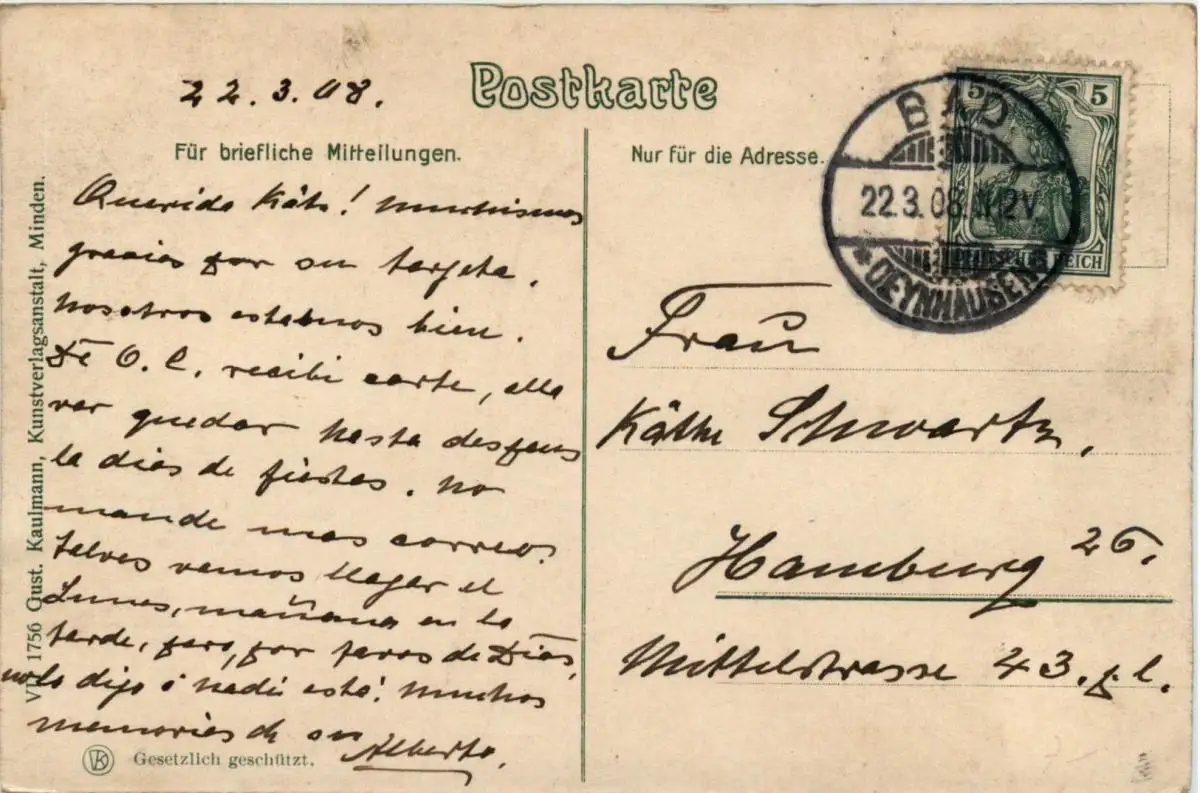 22.3.08.
Postkarte
Für briefliche Mitteilungen.
Nur für die Adresse.
5
5
DEUTSCHES REICH
BAD
22.3.08. 2V.
* OEYNHAUSEN *
Querida Käthe! muchisimos
gracias por su targeta.
Nosotros estamos bien.
De O. C. recibi carta, ella
var quedar hasta despues
la dias de fiestas. No
mande mas correo.
Talves vamos llegar el
Lunes, mañana en la
tarde, pero, por favor de Dios,
no lo dija á nadi esta! Muchos
memories de su
Alberto.
Frau
Käthe Schwartz,
Hamburg 26.
Mittelstrasse 43. p. l.
1756 Gust. Kaulmann, Kunstverlagsanstalt, Minden.
K
Gesetzlich geschützt.